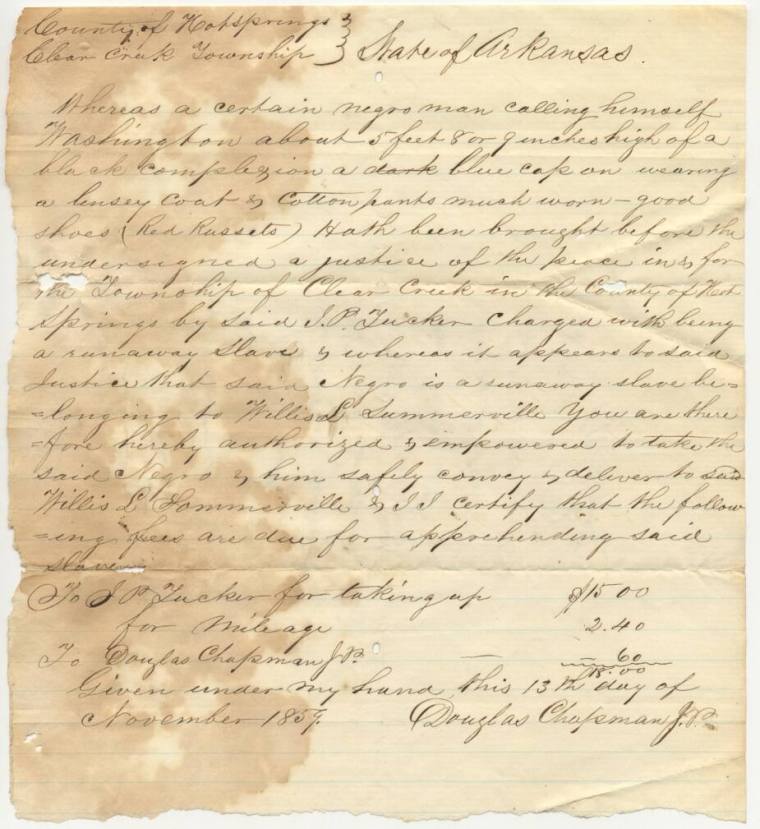 County of Hotsprings }
Clear Creek Township } State of Arkansas.
Whereas a certain negro man calling himself
Washington about 5 feet 8 or 9 inches high of a
black complexion a dark blue cap on wearing
a linsey coat & cotton pants much worn – good
shoes (Red Russets) Hath been brought before the
undersigned a justice of the peace in & for
the Township of Clear Creek in the County of Hot
Springs by said J. P. Tucker charged with being
a runaway slave & whereas it appears to said
Justice that said Negro is a runaway slave be=
=longing to Willis L Summerville You are there
=fore hereby authorized & empowered to take the
said Negro & him safely convey & deliver to said
Willis L Sommerville & I I certify that the follow
=ing fees are due for apprehending said
slave
To J P Tucker for taking up $15 00
for mileage 2.40
To Douglas Chapman J.P. — – 60
18.00
Given under my hand this 13th day of
November 1859. Douglas Chapman J.P.